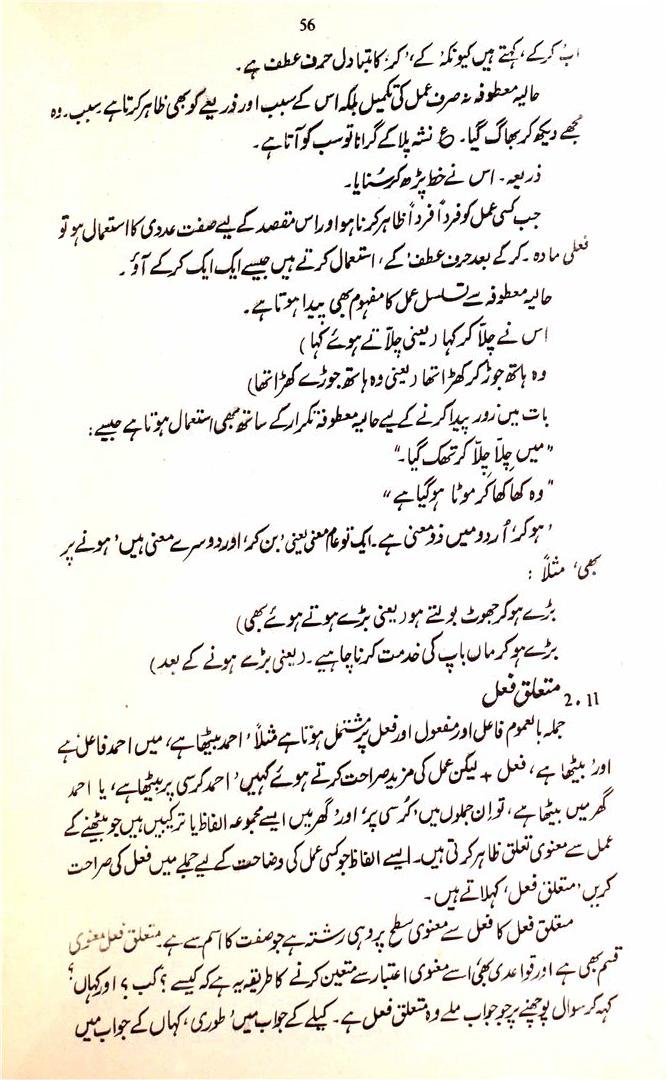 56
اب کر کے، کہتے ہیں کیونکہ 'کے' 'کر' کا متبادل حرف عطف ہے۔
حالیہ معطوفہ نہ صرف عمل کی تکمیل بلکہ اس کے سبب اور ذریعے کو بھی ظاہر کرتا ہے سبب۔ وہ
مجھے دیکھ کر بھاگ گیا۔ ع نشہ پلا کے گرانا تو سب کو آتا ہے۔
ذریعہ۔ اس نے خط پڑھ کر سُنایا۔
جب کسی عمل کو فرداً فرداً ظاہر کرنا ہو اور اس مقصد کے لیے صفت عددی کا استعمال ہو تو
فعلی مادہ۔ کر کے بعد حرف عطف 'کے' استعمال کرتے ہیں جیسے ایک ایک کر کے آؤ۔
حالیہ معطوفہ سے تسلسل عمل کا مفہوم بھی پیدا ہوتا ہے۔
اس نے چلّا کر کہا (یعنی چلّاتے ہوئے کہا)
وہ ہاتھ جوڑ کر کھڑا تھا (یعنی وہ ہاتھ جوڑے کھڑا تھا)
بات میں زور پیدا کرنے کے لیے حالیہ معطوفہ تکرار کے ساتھ بھی استعمال ہوتا ہے جیسے:
"میں چِلّا چِلّا کر تھک گیا۔"
"وہ کھا کھا کر موٹا ہو گیا ہے"
'ہو کر' اُردو میں ذو معنی ہے۔ ایک تو عام معنی یعنی 'بن کر' اور دوسرے معنی ہیں 'ہونے پر
بھی' مثلاً :
بڑے ہو کر جھوٹ بولتے ہو (یعنی بڑے ہوتے ہوئے بھی)
بڑے ہو کر ماں باپ کی خدمت کرنا چاہیے۔ (یعنی بڑے ہونے کے بعد)
2.11 متعلق فعل
جملہ بالعموم فاعل اور مفعول اور فعل پر مشتمل ہوتا ہے مثلاً 'احمد بیٹھا ہے' میں احمد فاعل ہے
اور 'بیٹھا ہے' فعل + لیکن عمل کی مزید صراحت کرتے ہوئے کہیں 'احمد کرسی پر بیٹھا ہے' یا احمد
گھر میں بیٹھا ہے، تو اِن جملوں میں 'کُرسی پر' اور 'گھر میں' ایسے مجموعہ الفاظ یا ترکیبیں ہیں جو بیٹھنے کے
عمل سے معنوی تعلق ظاہر کرتی ہیں۔ ایسے الفاظ جو کسی عمل کی وضاحت کے لیے جملے میں فعل کی صراحت
کریں 'متعلق فعل' کہلاتے ہیں۔
متعلق فعل کا فعل سے معنوی سطح پر وہی رشتہ ہے جو صفت کا اسم سے ہے۔ متعلق فعل معنوی
قسم بھی ہے اور قواعدی بھی اسے معنوی اعتبار سے متعین کرنے کا طریقہ یہ ہے کہ کیسے؟ کب؟ اور کہاں؟
کہہ کر سوال پوچھنے پر جو جواب ملے وہ متعلق فعل ہے۔ کیلے کے جواب میں 'طوری' کہاں کے جواب میں